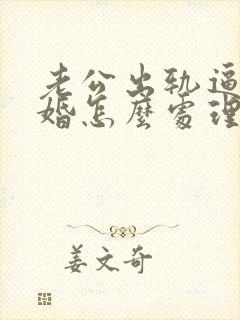 老公出轨逼
婚怎麼處理
姜文奇